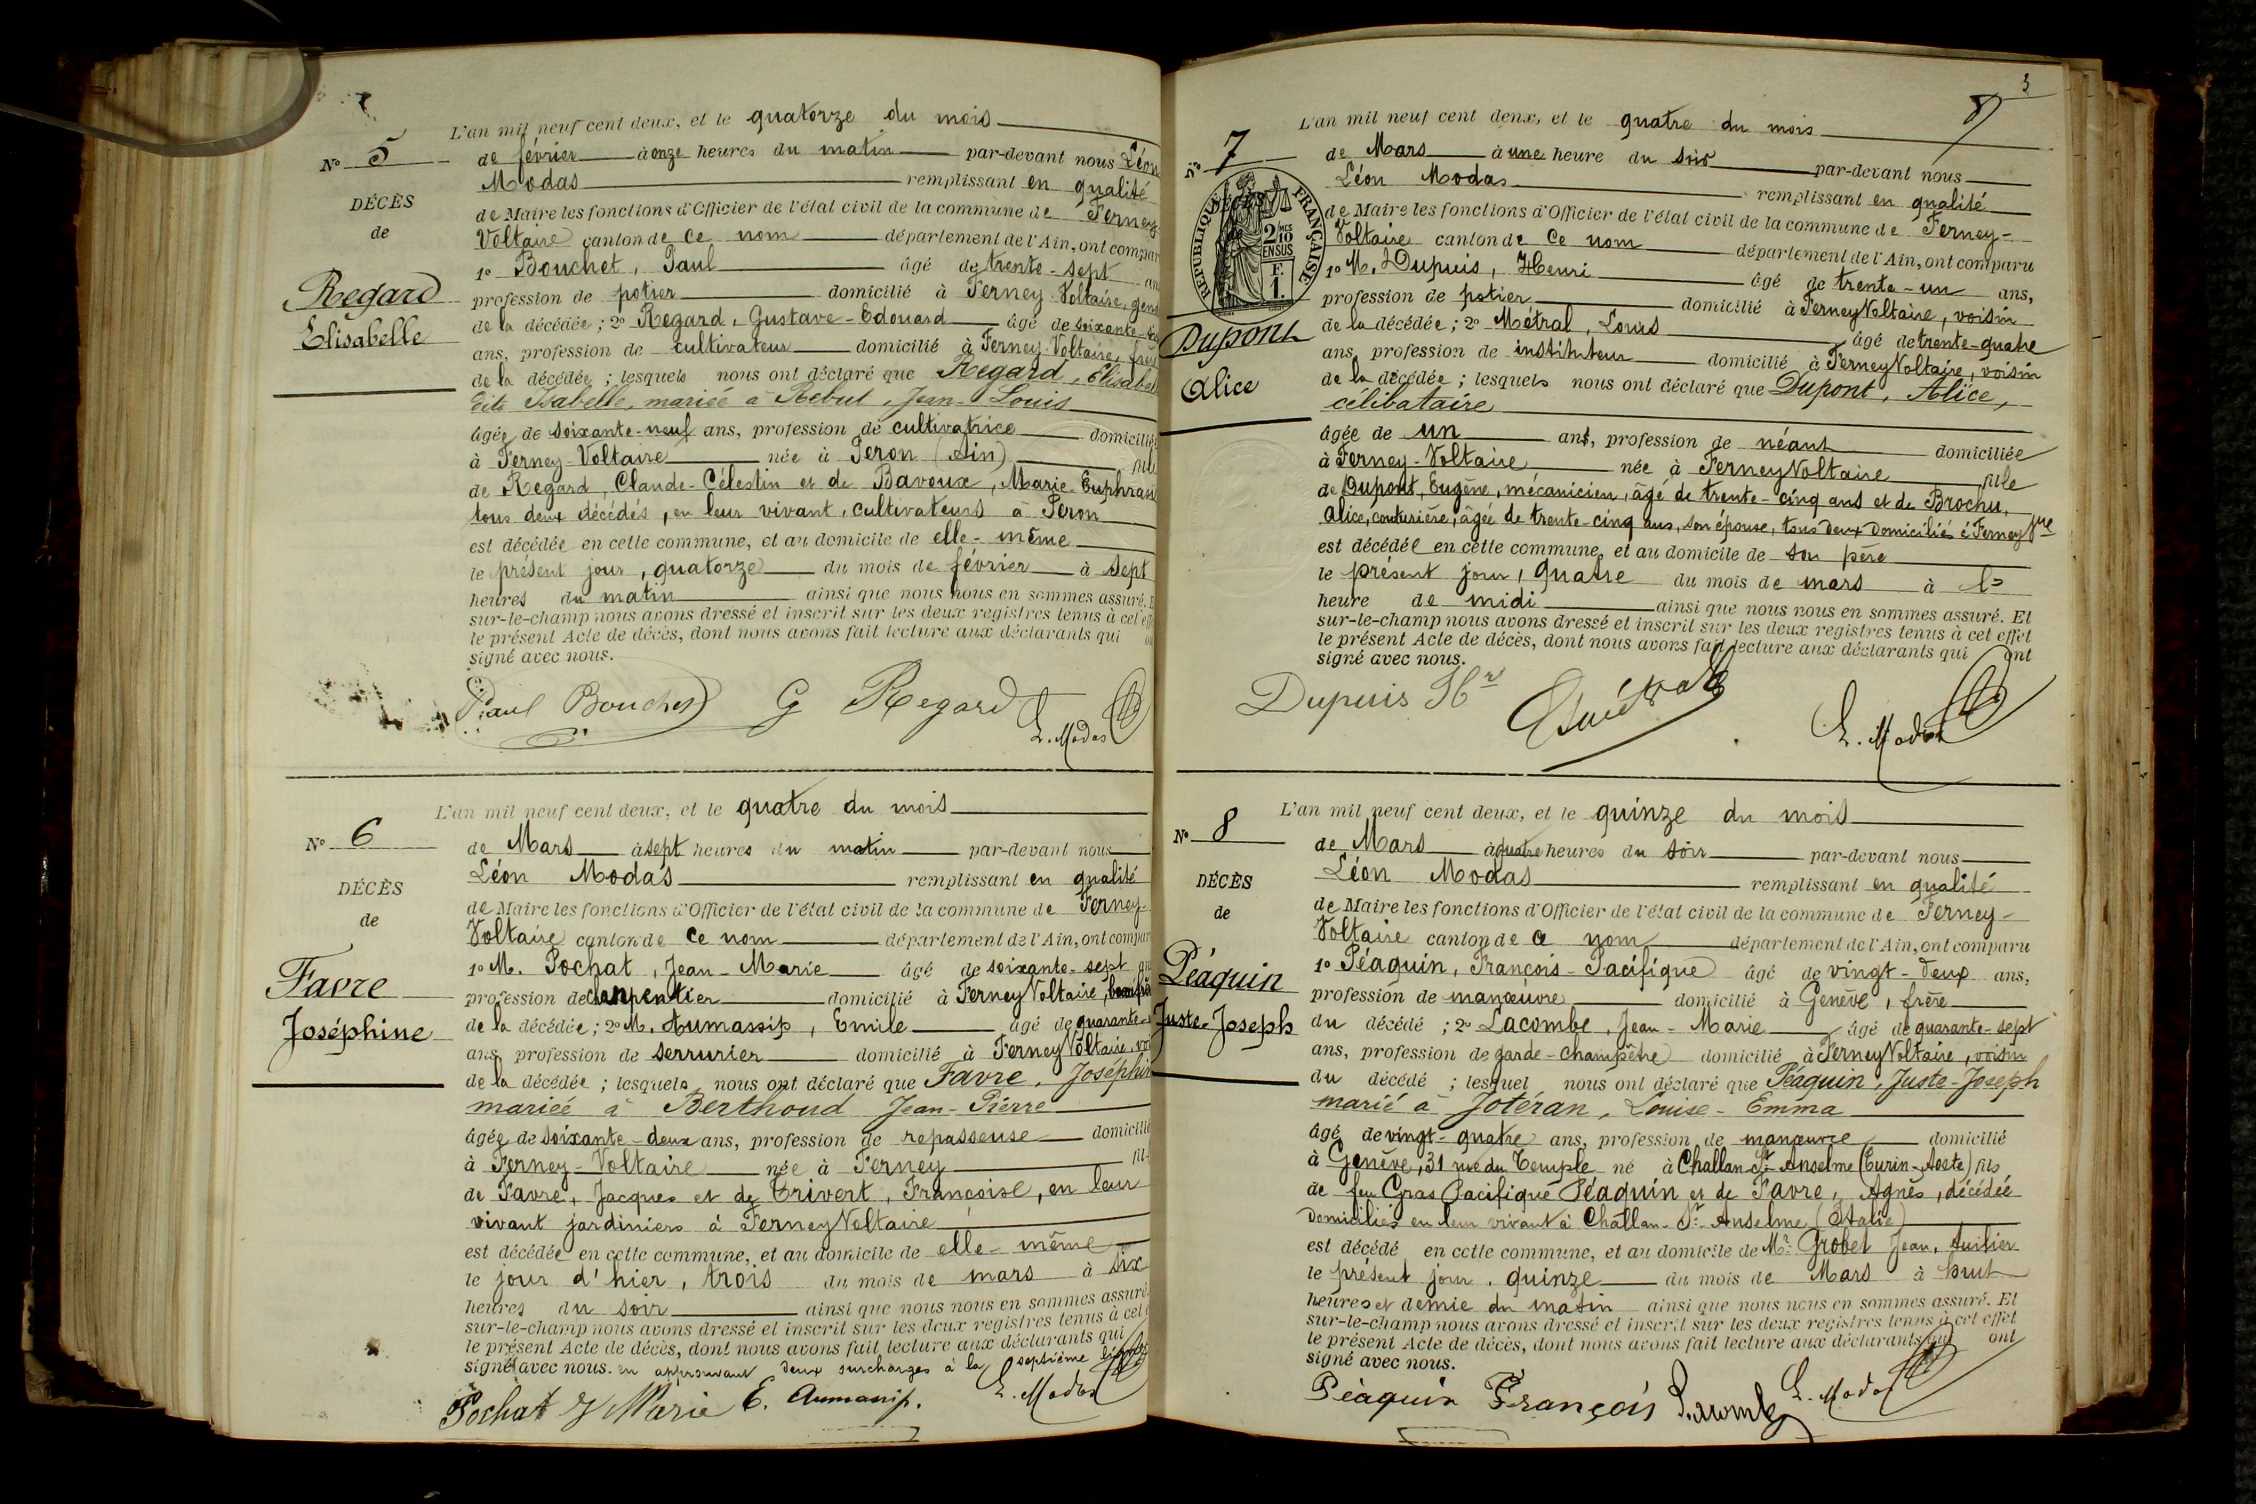 L'an mil neuf cent deux, et le quatorze du mois
No 5
de février à onze heures du matin par-devant nous Léon
Modas remplissant en qualité
DÉCÈS
de Maire les fonctions d'Officier de l'état civil de la commune de Ferney
de
Voltaire canton de ce nom département de l'Ain, ont compar
1o Bouchet, Paul âgé de trente-sept ans
Regard
profession de potier domicilié à Ferney-Voltaire, gendre
de la décédée; 2o Regard, Gustave-Edouard âgé de soixante
Elisabelle
ans, profession de cultivateur domicilié à Ferney-Voltaire, frère
de la décédée; lesquels nous ont déclaré que Regard, Elisabelle
dite Isabelle, mariée à Rebut, Jean-Louis
âgée de soixante-neuf ans, profession de cultivatrice domiciliée
à Ferney-Voltaire née à Peron (Ain) fille
de Regard, Claude-Célestin et de Bavoux, Marie-Euphrasie
tous deux décédés, en leur vivant, cultivateurs à Peron
est décédée en cette commune, et au domicile de elle-même
le présent jour, quatorze du mois de février à sept
heures du matin ainsi que nous nous en sommes assuré. E
sur-le-champ nous avons dressé et inscrit sur les deux registres tenus à cet eff
le présent Acte de décès, dont nous avons fait lecture aux déclarants qui
signé avec nous.
Paul Bouchet G Regard L. Modas
L'an mil neuf cent deux, et le quatre du mois
No 6
de Mars à sept heures du matin par-devant nous
Léon Modas remplissant en qualité
DÉCÈS
de Maire les fonctions d'Officier de l'état civil de la commune de Ferney-
de
Voltaire canton de ce nom département de l'Ain, ont compar
1o M. Pochat, Jean-Marie âgé de soixante-sept
Favre
profession de charpentier domicilié à Ferney Voltaire,
Joséphine
de la décédée; 2o M. Aumassip, Emile âgé de quarante
ans, profession de serrurier domicilié à Ferney Voltaire, voi
de la décédée; lesquels nous ont déclaré que Favre, Joséphine
mariée à Berthoud Jean-Pierre
âgée de soixante-deux ans, profession de repasseuse domicilié
à Ferney-Voltaire née à Ferney fil
de Favre, Jacques et de Trivert, Françoise, en leur
vivant jardiniers à Ferney Voltaire
est décédée en cette commune, et au domicile de elle-même
le jour d'hier, trois du mois de mars à six
heures du soir ainsi que nous nous en sommes assuré.
sur-le-champ nous avons dressé et inscrit sur les deux registres tenus à cet
le présent Acte de décès, dont nous avons fait lecture aux déclarants qui
signé avec nous. en approuvant deux surcharges à la septième ligne
Pochat J Marie E. Aumassip. L. Modas
3
L'an mil neuf cent deux, et le quatre du mois
No 7
de Mars à une heure du soir par-devant nous
Léon Modas remplissant en qualité
RÉPUBLIQUE FRANÇAISE
2/10 MES EN SUS
F. 1.
de Maire les fonctions d'Officier de l'état civil de la commune de Ferney-
Voltaire canton de ce nom département de l'Ain, ont comparu
1o M. Dupuis, Henri âgé de trente-un ans,
profession de potier domicilié à Ferney Voltaire, voisin
Dupont
de la décédée; 2o Métral, Louis âgé de trente-quatre
ans, profession de instituteur domicilié à Ferney Voltaire, voisin
Alice
de la décédée; lesquels nous ont déclaré que Dupont, Alice,
célibataire
âgée de un ans, profession de néant domiciliée
à Ferney-Voltaire née à Ferney Voltaire fille
de Dupont, Eugène, mécanicien, âgé de trente-cinq ans et de Brochu,
Alice, couturière, âgée de trente-cinq ans, son épouse, tous deux domiciliés à Ferney Vre
est décédée en cette commune, et au domicile de son père
le présent jour, quatre du mois de mars à l=
heure de midi ainsi que nous nous en sommes assuré. Et
sur-le-champ nous avons dressé et inscrit sur les deux registres tenus à cet effet
le présent Acte de décès, dont nous avons fait lecture aux déclarants qui ont
signé avec nous.
Dupuis Hri L. Modas
L'an mil neuf cent deux, et le quinze du mois
No 8
de Mars à quatre heures du soir par-devant nous
Léon Modas remplissant en qualité
DÉCÈS
de Maire les fonctions d'Officier de l'état civil de la commune de Ferney-
de
Voltaire canton de ce nom département de l'Ain, ont comparu
1o Péaquin, François-Pacifique âgé de vingt-deux ans,
Péaquin
profession de manœuvre domicilié à Genève, frère
Juste-Joseph
du décédé; 2o Lacombe, Jean-Marie âgé de quarante-sept
ans, profession de garde-champêtre domicilié à Ferney Voltaire, voisin
du décédé; lesquel nous ont déclaré que Péaquin, Juste-Joseph
marié à Jotéran, Louise-Emma
âgé de vingt-quatre ans, profession de manœuvre domicilié
à Genève, 31 rue du Temple né à Challan-St-Anselme (Turin-Aoste) fils
de feu Gras Pacifique Péaquin et de Favre, Agnès, décédée
domiciliés en leur vivant à Challan-St-Anselme (Italie)
est décédé en cette commune, et au domicile de Mr Grobet Jean, tuilier
le présent jour, quinze du mois de Mars à huit
heures et demie du matin ainsi que nous nous en sommes assuré. Et
sur-le-champ nous avons dressé et inscrit sur les deux registres tenus à cet effet
le présent Acte de décès, dont nous avons fait lecture aux déclarants qui ont
signé avec nous.
Péaquin François Lacombe L. Modas